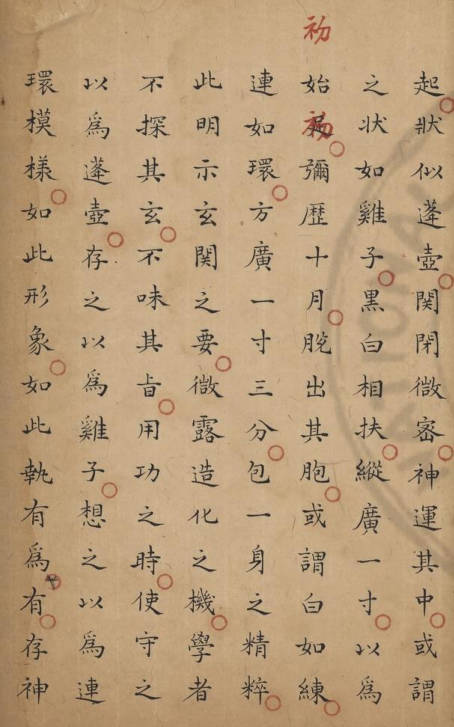 起狀似蓬壺関閉微密神運其中或謂
之狀如雞子黑白相扶縱廣一寸以為
始初彌歷十月脫出其胞或謂白如練
連如環方廣一寸三分包一身之精粹
此明示玄関之要微露造化之機學者
不探其玄不味其旨用功之時使守之
以為蓬壺存之以為雞子想之以為連
環模樣如此形象如此執有為有存神
初
NATIONAL